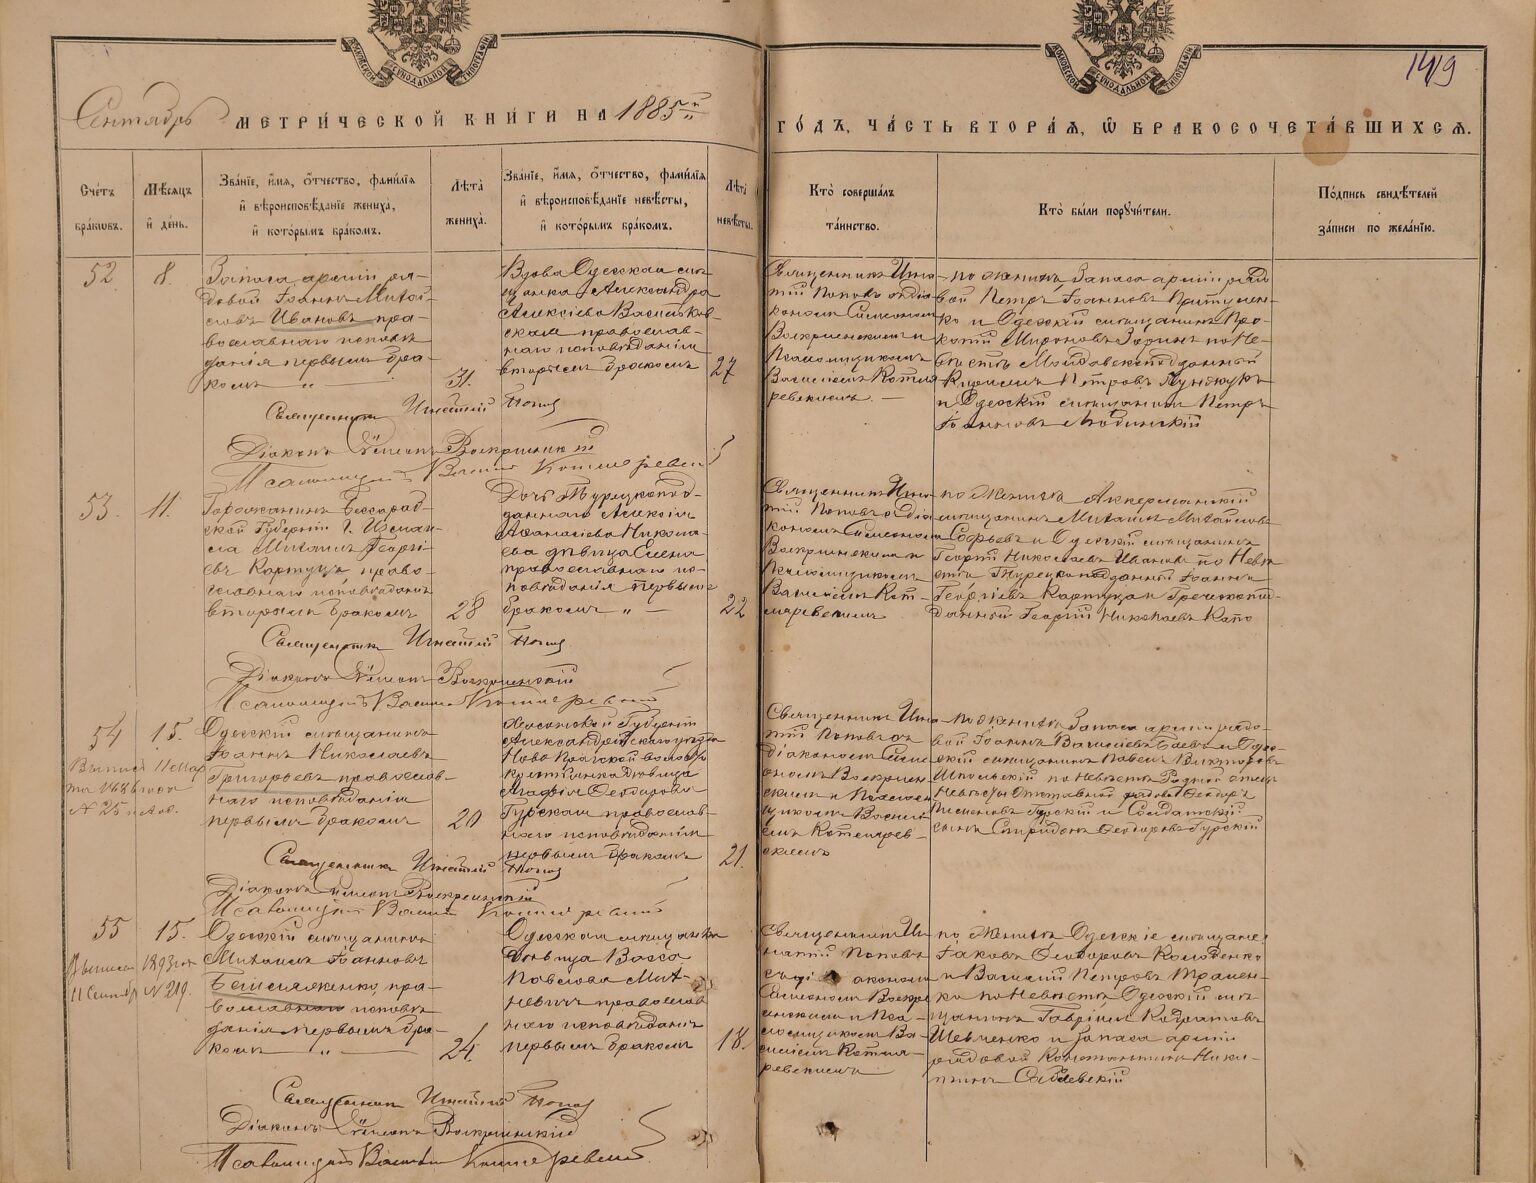 МОСКОВСКОЙ СѴНОДАЛЬНОЙ ТИПОГРАФІИ
МОСКОВСКОЙ СѴНОДАЛЬНОЙ ТИПОГРАФІИ
149
Сентябрь МЕТРИ́ЧЕСКОЙ КНИ́ГИ НА 1885й
ГО́ДЪ, ЧА́СТЬ ВТОРА́Я, Ѽ БРАКОСОЧЕТА́ВШИХСЯ.
Сче́тъ бра́кѡвъ.
Мѣ́сяцъ и҆ де́нь.
Зва́нїе, и҆́мя, ѻ҆́тчество, фами́лїя
и҆ вѣроисповѣ́данїе жениха̀,
и҆ кото́рымъ бра́комъ.
Лѣ́та жениха̀.
Зва́нїе, и҆́мя, ѻ҆́тчество, фами́лїя
и҆ вѣроисповѣ́данїе невѣ́сты,
и҆ кото́рымъ бра́комъ.
Лѣ́та невѣ́сты.
Кто̀ соверша́лъ
та́инство.
Кто̀ бы́ли порꙋчи́тели.
По́дпись свидѣ́телей
за́писи по жела́нїю.
52
8.
Запаса арміи ря-
довой Іоаннъ Михай-
ловъ Ивановъ пра-
вославнаго исповѣ
данія первымъ бра-
комъ „ —
31.
Вдова Одесская мѣ
щанка Александра
Алексіева Васильков-
ская православ-
наго исповѣданія
вторымъ бракомъ
27
Священникъ Игна-
тій Поповъ съ діа-
кономъ Симеономъ
Воскресенскимъ и
Псаломщикомъ
Василіемъ Котля
ревскимъ. —
по женихѣ Запаса арміи рядо
вой Петръ Іоанновъ Притулен-
ко и Одесскій мѣщанинъ Про-
копій Мироновъ Зоринъ по Не-
вѣстѣ Молдовскоподданный
Кириллъ Петровъ
и Одесскій мѣщанинъ Петръ
Іоанновъ
Священникъ Игнатій Попов
Діаконъ Сѵмеонъ Воскресенскій
Псаломщикъ Василій Котляревскій
53.
11.
Горожанинъ Бессараб-
ской Губерніи г. Измаи-
ла Михаилъ Георгі-
евъ Картуцъ, право-
славнаго исповѣданія
вторымъ бракомъ
28
Дочь Турецкопод-
даннаго Алексія
Аѳанасіева Никола-
ева дѣвица Елена
православнаго ис-
повѣданія первымъ
бракомъ „ —
22
Священникъ Игна-
тій Поповъ съ діа
кономъ Симеономъ
Воскресенскимъ и
Псаломщикомъ
Василіемъ Кот-
ляревскимъ
по Женихѣ Аккерманскій
мѣщанинъ Михаилъ Михайловъ
Софьевъ и Одесскій мѣщанинъ
Георгій Николаевъ Ивановъ по Невѣ
стѣ Турецкоподданный Іоаннъ
Георгіевъ Картуцъ и Греческопод-
данный Георгій Николаевъ Капо
Священникъ Игнатій Попов
Діаконъ Сѵмеонъ Воскресенскій
Псаломщикъ Василій Котляревскій
54
15.
Одесскій мѣщанинъ
Іоаннъ Николаевъ
Григорьевъ православ-
наго исповѣданія
первымъ бракомъ
20
Херсонской Губерніи
Александрійскаго уѣзда
Ново Прагской волости
крестьянка дѣвица
Ѳеодорова
Гурская православ-
наго исповѣданія
первымъ бракомъ
21.
Священникъ Игна-
тій Поповъ съ
діакономъ Симе-
ономъ Воскресен-
скимъ и Псалом-
щикомъ Василі-
емъ Котляров-
скимъ
по женихѣ Запаса арміи рядо-
вой Іоаннъ Василіевъ Баевъ и Одес-
скій мѣщанинъ Павелъ Викторовъ
Школьскій по Невѣстѣ Родной отецъ
Невѣсты Отставной рядовой Ѳеодоръ
Пименовъ Гурскій и Солдатскій
сынъ Спиридонъ Ѳеодоровъ Гурскій
Священникъ Игнатій Попов
Діаконъ Сѵмеонъ Воскресенскій
Псаломщикъ Василій Котляревскій
55
15.
Одесскій мѣщанинъ
Михаилъ Іоанновъ
православнаго исповѣ
данія первымъ бра-
комъ „ —
24.
Одесская мѣщанка
дѣвица Васса
Павлова Мих-
невичъ православ
наго исповѣданія
первымъ бракомъ
18.
Священникъ Иг-
натій Поповъ
съ діакономъ
Симеономъ Воскре
сенскимъ и Пса-
ломщикомъ Ва-
силіемъ Котля-
ревскимъ
по Женихѣ Одесскіе мѣщане:
Іаковъ Ѳеодоровъ Колоденко
и Василій Петровъ Трален-
ко по Невѣстѣ Одесскій мѣ
щанинъ Гавріилъ Кодратовъ
Шевченко и Запаса арміи
рядовой Константинъ Ники-
тинъ
Священникъ Игнатій Попов
Діаконъ Сѵмеонъ Воскресенскій
Псаломщикъ Василій Котляревскій